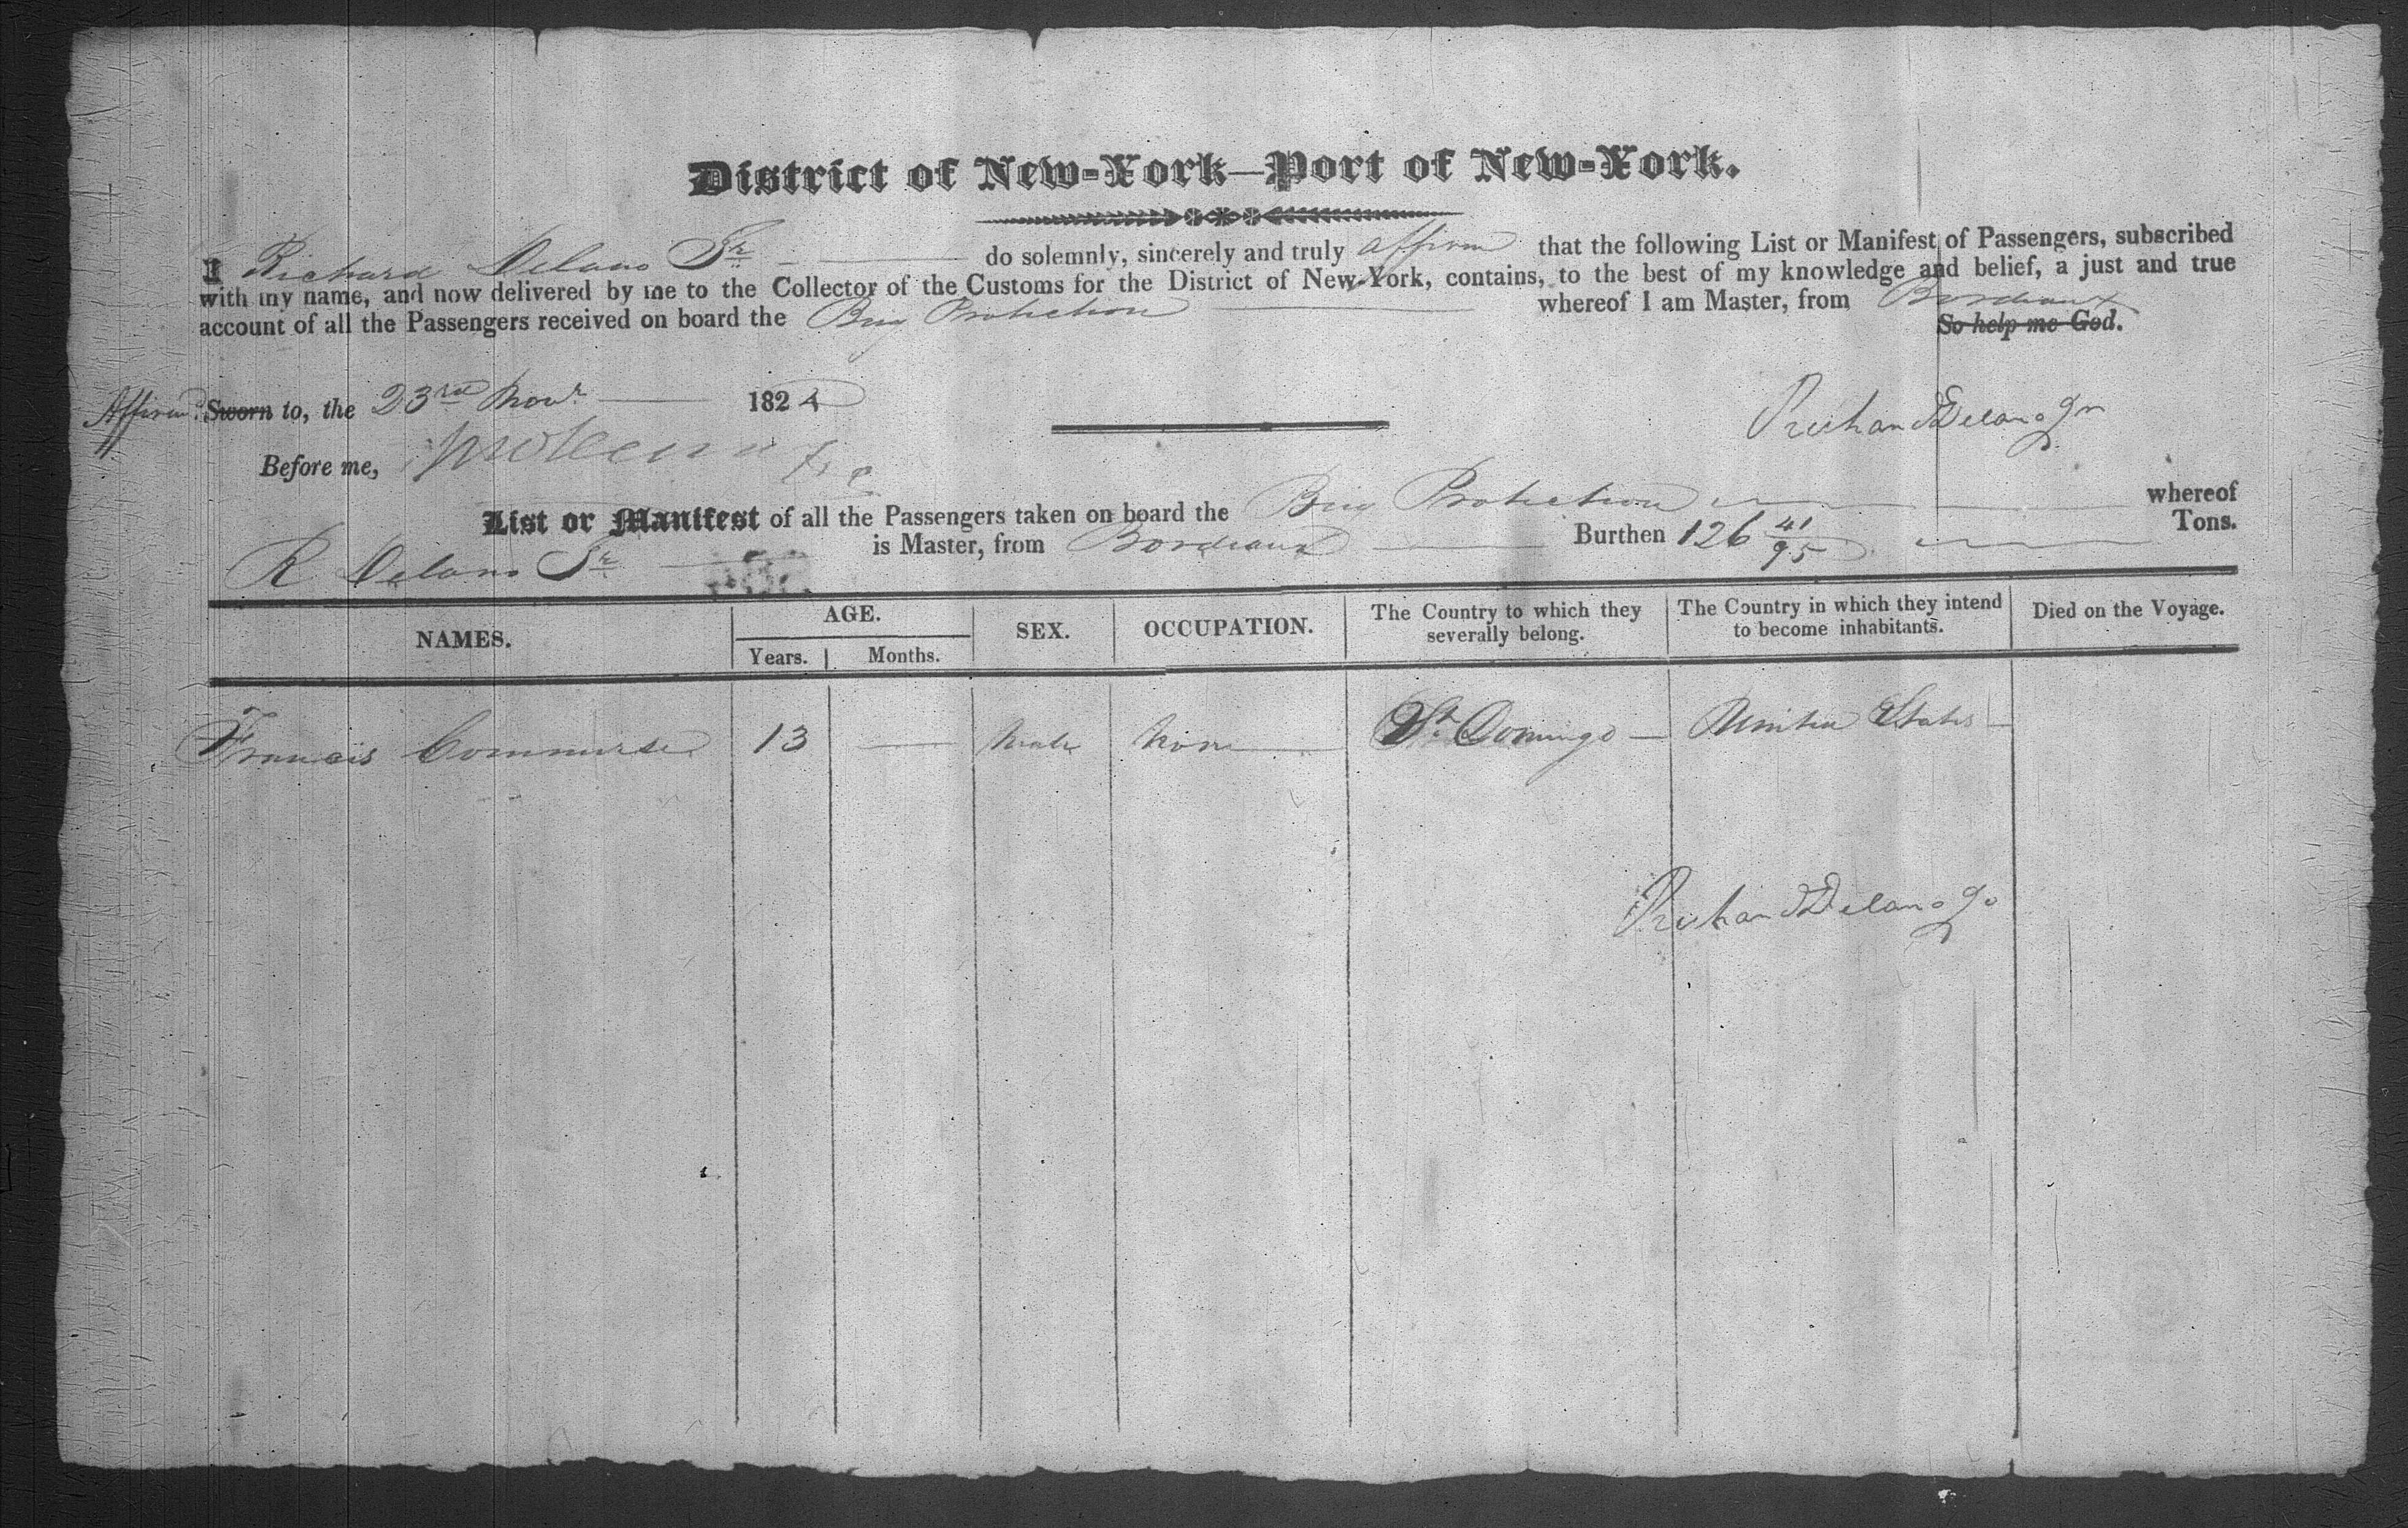 District of New-York—Port of New-York.
I Richard Delano Jr do solemnly, sincerely and truly affirm that the following List or Manifest of Passengers, subscribed
with my name, and now delivered by me to the Collector of the Customs for the District of New-York, contains, to the best of my knowledge and belief, a just and true
account of all the Passengers received on board the Brig Protection whereof I am Master, from Bordeaux
So help me God.
Affirmd Sworn to, the 23rd Novr 1824
Richard Delano Jr
Before me,
List or Manifest of all the Passengers taken on board the Brig Protection whereof
R Delano Jr is Master, from Bordeaux Burthen 126 41/95 Tons.
NAMES. AGE. SEX. OCCUPATION. The Country to which they severally belong. The Country in which they intend to become inhabitants. Died on the Voyage.
Years. Months.
Francis 13 — Male None St. Domingo — United States —
Richard Delano Jr